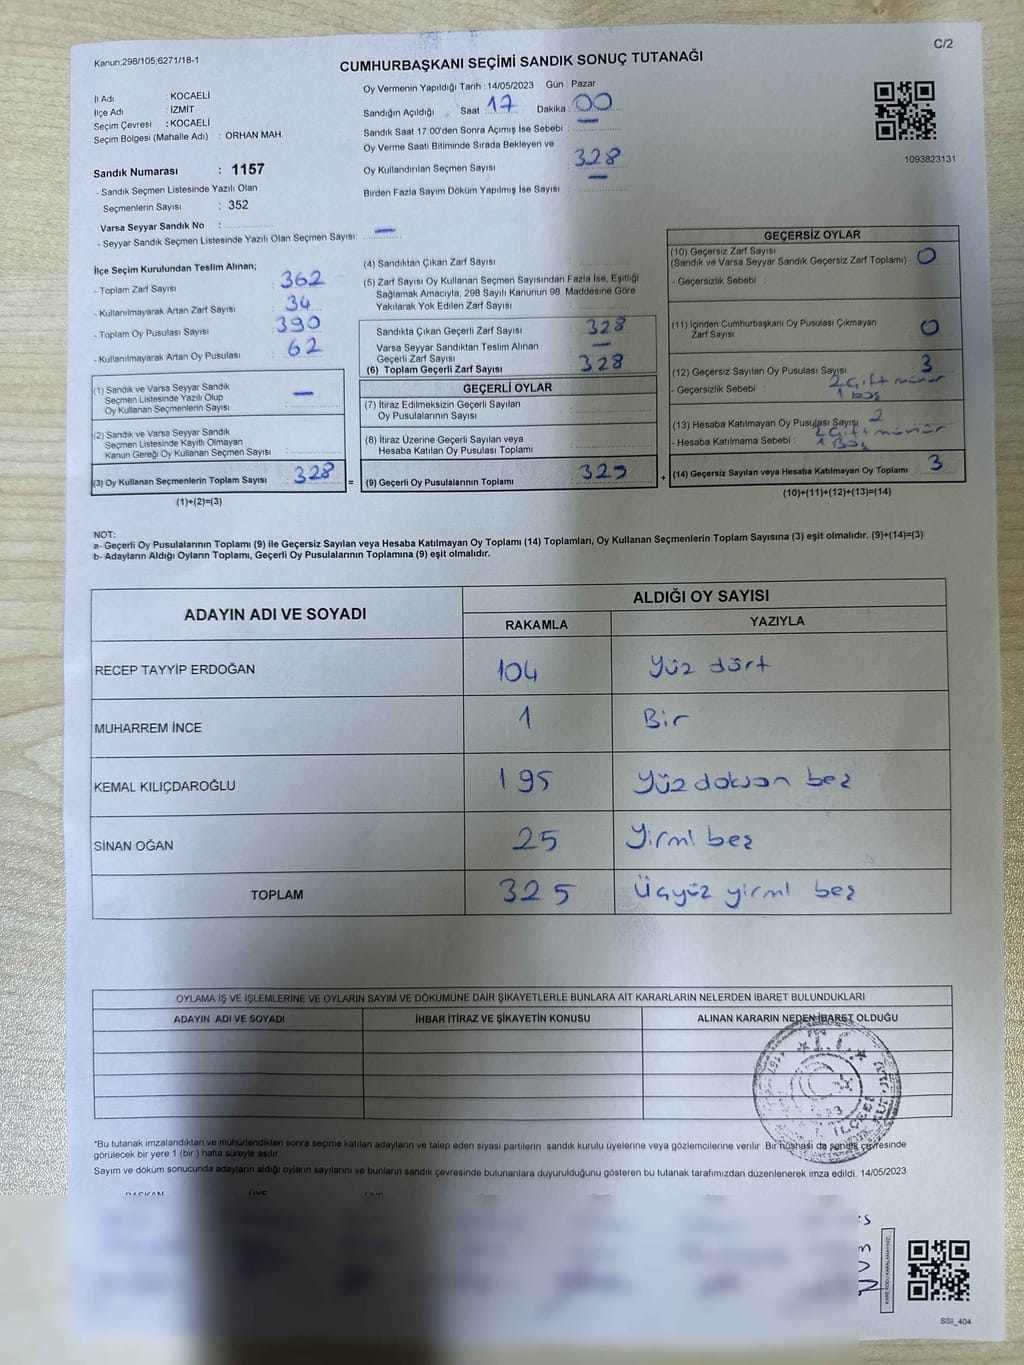 Kanun:298/105,6271/18-1
C/2
CUMHURBAŞKANI SEÇİMİ SANDIK SONUÇ TUTANAĞI
İl Adı : KOCAELİ
İlçe Adı : İZMİT
Seçim Çevresi : KOCAELİ
Seçim Bölgesi (Mahalle Adı) : ORHAN MAH.
Sandık Numarası : 1157
- Sandık Seçmen Listesinde Yazılı Olan
Seçmenlerin Sayısı : 352
Varsa Seyyar Sandık No :
- Seyyar Sandık Seçmen Listesinde Yazılı Olan Seçmen Sayısı: —
Oy Vermenin Yapıldığı Tarih : 14/05/2023 Gün : Pazar
Sandığın Açıldığı Saat 17 Dakika 00
Sandık Saat 17.00'den Sonra Açımış İse Sebebi : —
Oy Verme Saati Bitiminde Sırada Bekleyen ve
Oy Kullandırılan Seçmen Sayısı : 328
Birden Fazla Sayım Döküm Yapılmış İse Sayısı : —
1093823131
İlçe Seçim Kurulundan Teslim Alınan;
- Toplam Zarf Sayısı : 362
- Kullanılmayarak Artan Zarf Sayısı : 34
- Toplam Oy Pusulası Sayısı : 390
- Kullanılmayarak Artan Oy Pusulası : 62
(1) Sandık ve Varsa Seyyar Sandık
Seçmen Listesinde Yazılı Olup
Oy Kullanan Seçmenlerin Sayısı : —
(2) Sandık ve Varsa Seyyar Sandık
Seçmen Listesinde Kayıtlı Olmayan
Kanun Gereği Oy Kullanan Seçmen Sayısı :
(3) Oy Kullanan Seçmenlerin Toplam Sayısı : 328 =
(1)+(2)=(3)
(4) Sandıktan Çıkan Zarf Sayısı :
(5) Zarf Sayısı Oy Kullanan Seçmen Sayısından Fazla İse, Eşitliği
Sağlamak Amacıyla, 298 Sayılı Kanunun 98. Maddesine Göre
Yakılarak Yok Edilen Zarf Sayısı :
Sandıkta Çıkan Geçerli Zarf Sayısı : 328
Varsa Seyyar Sandıktan Teslim Alınan
Geçerli Zarf Sayısı : —
(6) Toplam Geçerli Zarf Sayısı : 328
GEÇERLİ OYLAR
(7) İtiraz Edilmeksizin Geçerli Sayılan
Oy Pusulalarının Sayısı :
(8) İtiraz Üzerine Geçerli Sayılan veya
Hesaba Katılan Oy Pusulası Toplamı :
(9) Geçerli Oy Pusulalarının Toplamı : 325 +
GEÇERSİZ OYLAR
(10) Geçersiz Zarf Sayısı
(Sandık ve Varsa Seyyar Sandık Geçersiz Zarf Toplamı) : 0
- Geçersizlik Sebebi :
(11) İçinden Cumhurbaşkanı Oy Pusulası Çıkmayan
Zarf Sayısı : 0
(12) Geçersiz Sayılan Oy Pusulası Sayısı : 3
- Geçersizlik Sebebi : 2 Çift mühür
1 boş
(13) Hesaba Katılmayan Oy Pusulası Sayısı : 2
- Hesaba Katılmama Sebebi : 2 Çift mühür
1 Boş
(14) Geçersiz Sayılan veya Hesaba Katılmayan Oy Toplamı : 3
(10)+(11)+(12)+(13)=(14)
NOT:
a- Geçerli Oy Pusulalarının Toplamı (9) ile Geçersiz Sayılan veya Hesaba Katılmayan Oy Toplamı (14) Toplamları, Oy Kullanan Seçmenlerin Toplam Sayısına (3) eşit olmalıdır. (9)+(14)=(3)
b- Adayların Aldığı Oyların Toplamı, Geçerli Oy Pusulalarının Toplamına (9) eşit olmalıdır.
ADAYIN ADI VE SOYADI
ALDIĞI OY SAYISI
RAKAMLA YAZIYLA
RECEP TAYYİP ERDOĞAN 104 Yüz dört
MUHARREM İNCE 1 Bir
KEMAL KILIÇDAROĞLU 195 Yüz doksan beş
SİNAN OĞAN 25 Yirmi beş
TOPLAM 325 Üçyüz yirmi beş
OYLAMA İŞ VE İŞLEMLERİNE VE OYLARIN SAYIM VE DÖKÜMÜNE DAİR ŞİKAYETLERLE BUNLARA AİT KARARLARIN NELERDEN İBARET BULUNDUKLARI
ADAYIN ADI VE SOYADI İHBAR İTİRAZ VE ŞİKAYETİN KONUSU ALINAN KARARIN NEDEN İBARET OLDUĞU
T.C.
*Bu tutanak imzalandıktan ve mühürlendikten sonra seçime katılan adayların ve talep eden siyasi partilerin sandık kurulu üyelerine veya gözlemcilerine verilir. Bir nüshası da sandık çevresinde
görülecek bir yere 1 (bir ) hafta süreyle asılır.
Sayım ve döküm sonucunda adayların aldığı oyların sayılarını ve bunların sandık çevresinde bulunanlara duyurulduğunu gösteren bu tutanak tarafımızdan düzenlenerek imza edildi. 14/05/2023
BAŞKAN ÜYE ÜYE
SSI_404